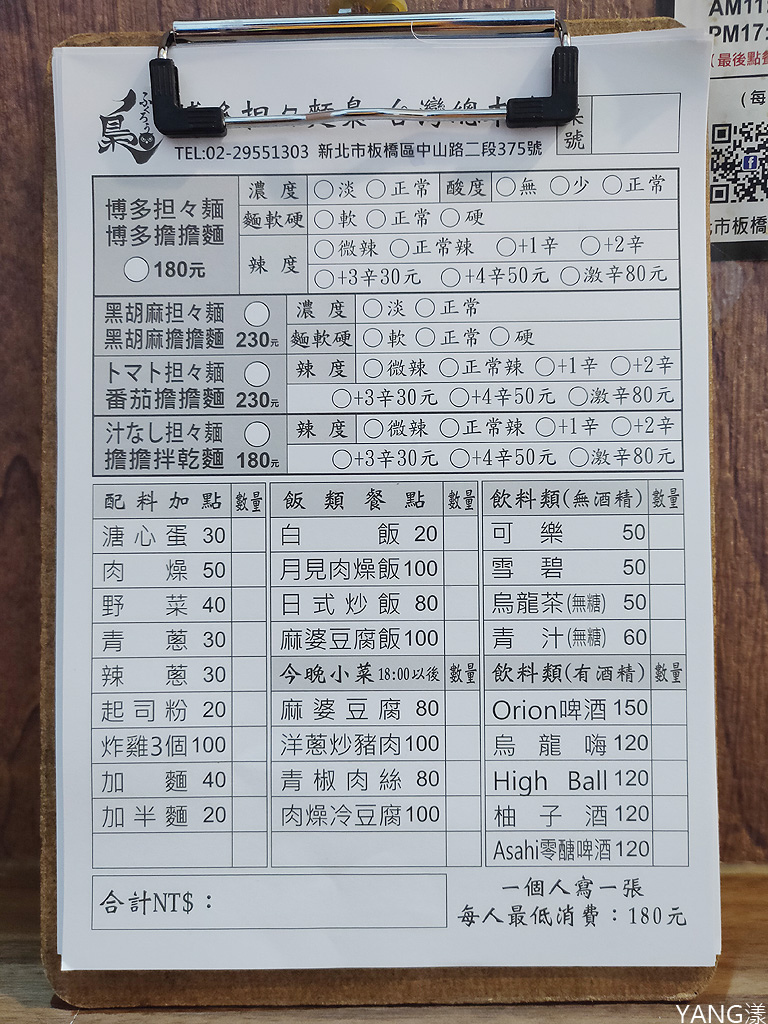 AM11:
PM17:
(最後點餐
(每
市板橋
ふくろう
梟
博多担々麺梟 台灣總本
桌號
TEL:02-29551303 新北市板橋區中山路二段375號
博多担々麺
博多擔擔麵
○180元
濃度 ○淡 ○正常 酸度 ○無 ○少 ○正常
麵軟硬 ○軟 ○正常 ○硬
辣度 ○微辣 ○正常辣 ○+1辛 ○+2辛
○+3辛30元 ○+4辛50元 ○激辛80元
黑胡麻担々麺 ○
黑胡麻擔擔麵 230元
濃度 ○淡 ○正常
麵軟硬 ○軟 ○正常 ○硬
トマト担々麺 ○
番茄擔擔麵 230元
辣度 ○微辣 ○正常辣 ○+1辛 ○+2辛
○+3辛30元 ○+4辛50元 ○激辛80元
汁なし担々麺 ○
擔擔拌乾麵 180元
辣度 ○微辣 ○正常辣 ○+1辛 ○+2辛
○+3辛30元 ○+4辛50元 ○激辛80元
配料加點 數量
溏心蛋 30
肉燥 50
野菜 40
青蔥 30
辣蔥 30
起司粉 20
炸雞3個 100
加麵 40
加半麵 20
飯類餐點 數量
白飯 20
月見肉燥飯 100
日式炒飯 80
麻婆豆腐飯 100
今晚小菜 18:00以後 數量
麻婆豆腐 80
洋蔥炒豬肉 100
青椒肉絲 80
肉燥冷豆腐 100
飲料類(無酒精) 數量
可樂 50
雪碧 50
烏龍茶(無糖) 50
青汁(無糖) 60
飲料類(有酒精) 數量
Orion啤酒 150
烏龍嗨 120
High Ball 120
柚子酒 120
Asahi零醣啤酒 120
合計NT$：
一個人寫一張
每人最低消費：180元
YANG漾